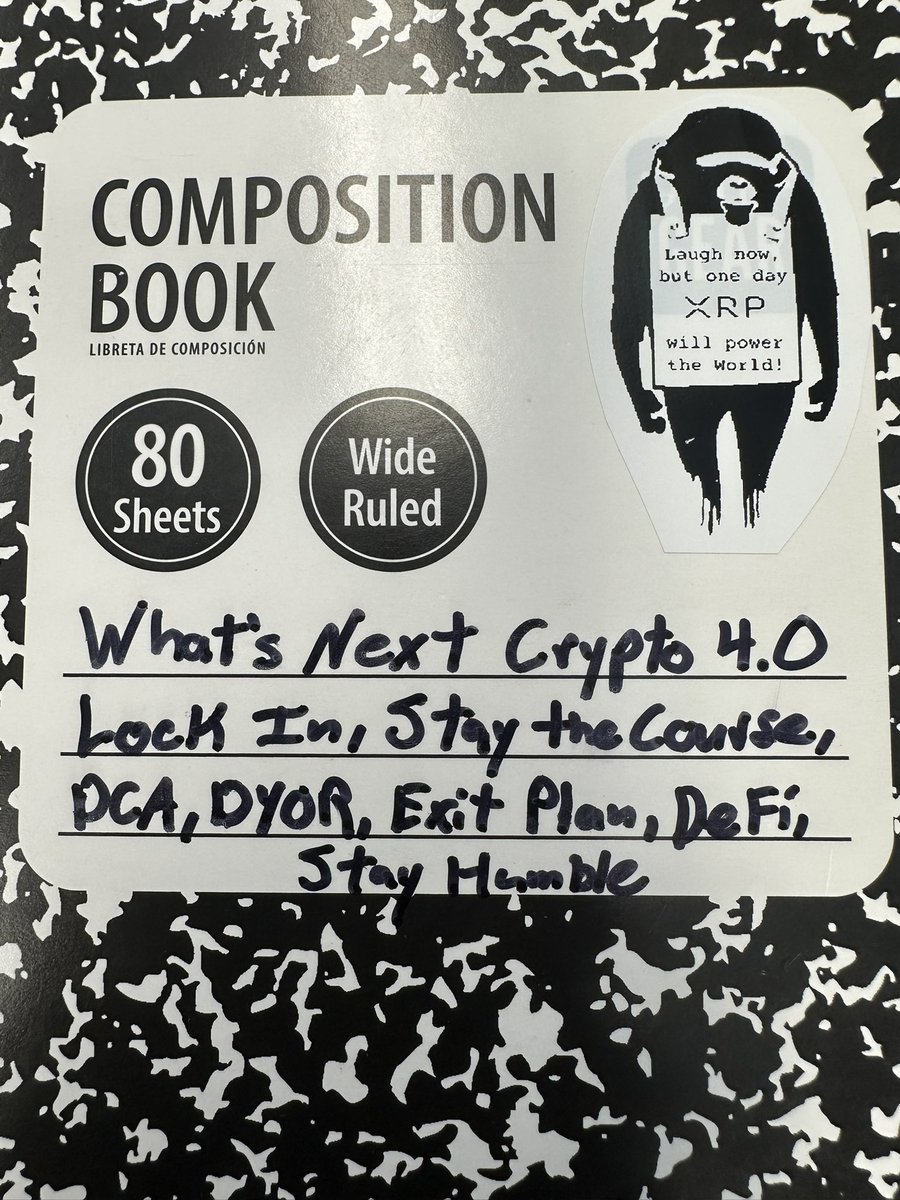 COMPOSITION
BOOK
LIBRETA DE COMPOSICIÓN
80
Sheets
Wide
Ruled
Laugh now,
but one day
XRP
will power
the World!
What's Next Crypto 4.0
Lock In, Stay the Course,
DCA, DYOR, Exit Plan, DeFi,
Stay Humble